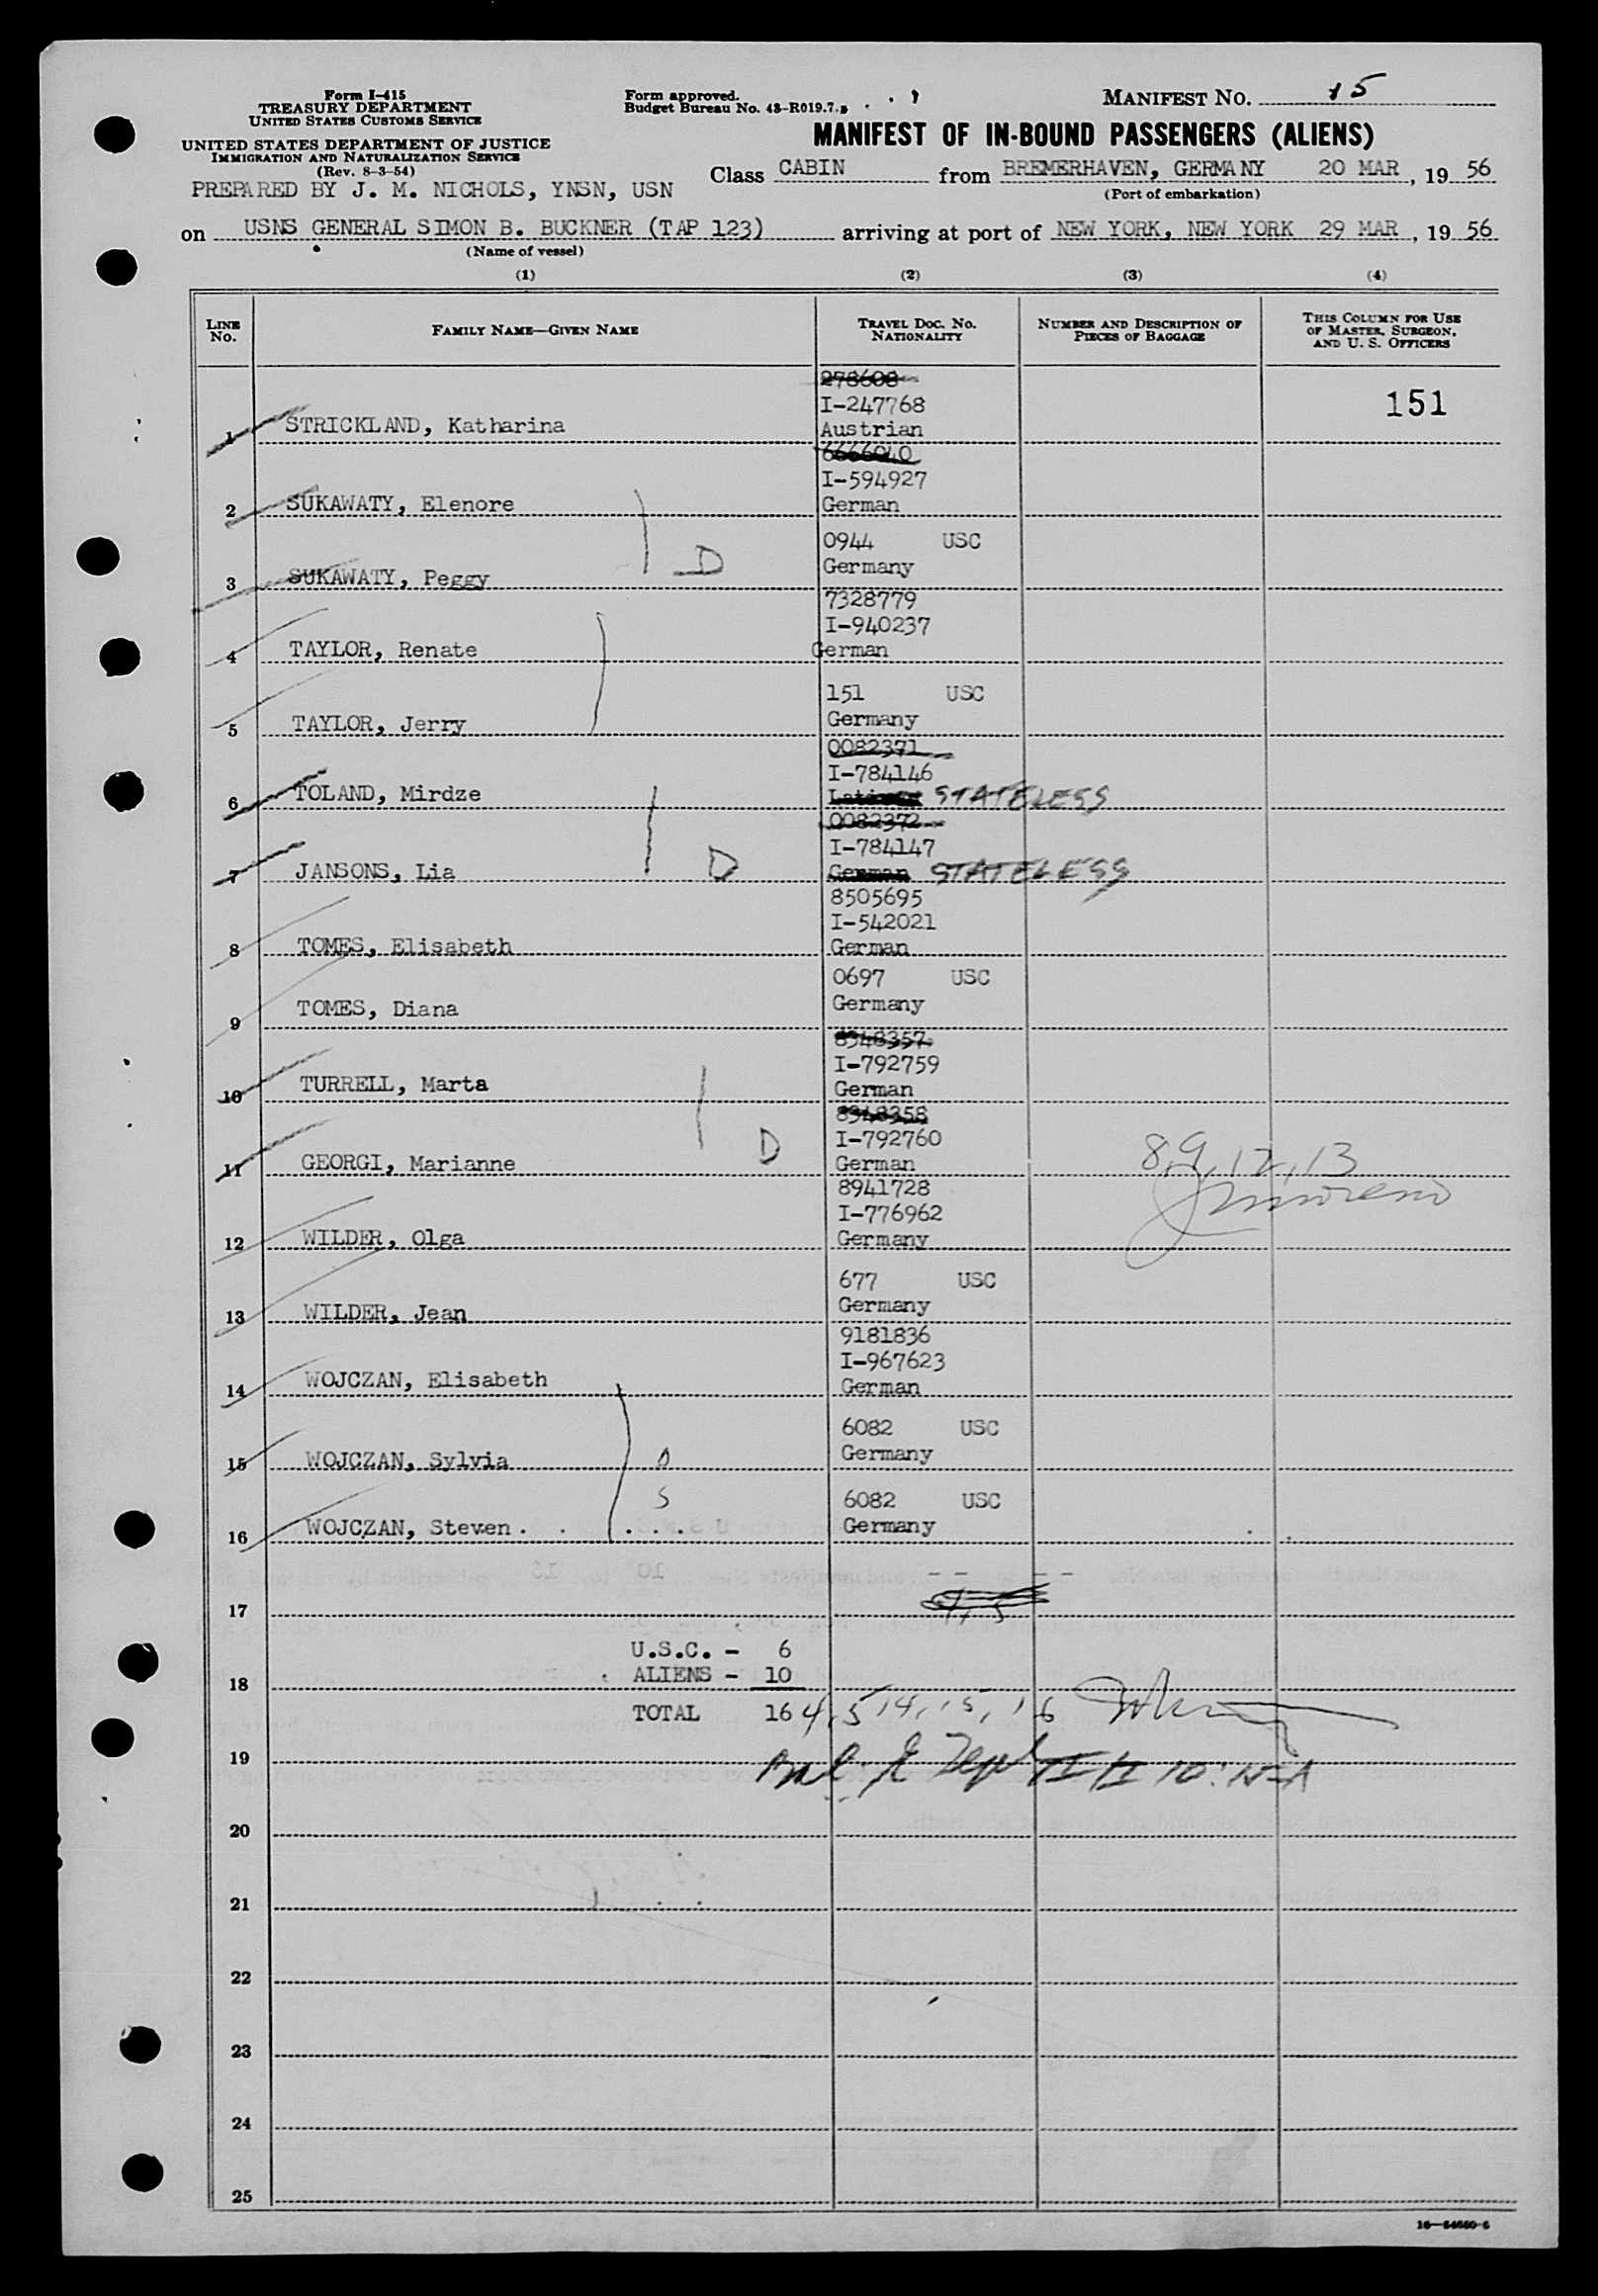 Form I-415
TREASURY DEPARTMENT
UNITED STATES CUSTOMS SERVICE
UNITED STATES DEPARTMENT OF JUSTICE
IMMIGRATION AND NATURALIZATION SERVICE
(Rev. 8-3-54)
PREPARED BY J. M. NICHOLS, YNSN, USN
Form approved.
Budget Bureau No. 43-R019.7.
MANIFEST NO. 15
MANIFEST OF IN-BOUND PASSENGERS (ALIENS)
Class CABIN from BREMERHAVEN, GERMANY 20 MAR, 19 56
(Port of embarkation)
on USNS GENERAL SIMON B. BUCKNER (TAP 123) arriving at port of NEW YORK, NEW YORK 29 MAR, 19 56
(Name of vessel)
(1) (2) (3) (4)
LINE No. FAMILY NAME—GIVEN NAME TRAVEL DOC. NO. NATIONALITY NUMBER AND DESCRIPTION OF PIECES OF BAGGAGE THIS COLUMN FOR USE OF MASTER, SURGEON, AND U. S. OFFICERS
278608
I-247768 151
1 STRICKLAND, Katharina Austrian
6666040
I-594927
2 SUKAWATY, Elenore German
0944 USC
D
3 SUKAWATY, Peggy Germany
7328779
I-940237
4 TAYLOR, Renate German
151 USC
5 TAYLOR, Jerry Germany
0082371
I-784146
6 TOLAND, Mirdze STATELESS
0082372
I-784147
7 JANSONS, Lia D German STATELESS
8505695
I-542021
8 TOMES, Elisabeth German
0697 USC
9 TOMES, Diana Germany
8348357
I-792759
10 TURRELL, Marta German
8348358
I-792760
11 GEORGI, Marianne D German 8, 9, 12, 13
8941728
I-776962
12 WILDER, Olga Germany
677 USC
13 WILDER, Jean Germany
9181836
I-967623
14 WOJCZAN, Elisabeth German
6082 USC
15 WOJCZAN, Sylvia Germany
S
6082 USC
16 WOJCZAN, Steven Germany
4, 5
17
U.S.C. - 6
18 ALIENS - 10
TOTAL 16 4, 5 14, 15, 16
19
10:15 A
20
21
22
23
24
25